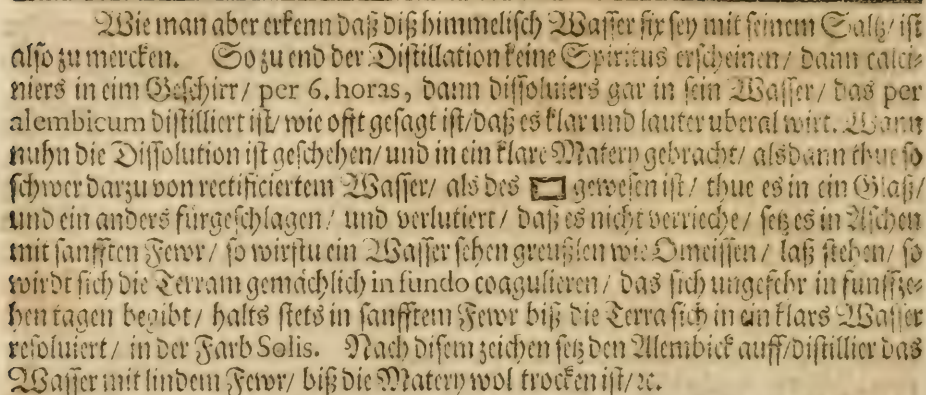 Wie man aber erkenn daß diß himmelisch Wasser fix sey mit seinem Saltz/ ist
also zu mercken. So zu end der Distillation keine Spiritus erscheinen/ dann calci-
niers in eim Geschirr/ per 6. horas, dann dissoluiers gar in sein Wasser/ das per
alembicum distilliert ist/ wie offt gesagt ist/ daß es klar und lauter uberal wirt. Wann
nuhn die Dissolution ist geschehen/ und in ein klare Matery gebracht/ alsdann thue so
schwer darzu von rectificiertem Wasser/ als des gewesen ist/ thue es in ein Glaß/
und ein anders fürgeschlagen/ und verlutiert/ daß es nicht verrieche/ setz es in Aschen
mit sanfften Fewr/ so wirstu ein Wasser sehen greußlen wie Omeissen/ laß stehen/ so
wirdt sich die Terram gemächlich in fundo coagulieren/ das sich ungefehr in funffze-
hen tagen begibt/ halts stets in sanfftem Fewr biß die Terra sich in ein klars Wasser
resoluiert/ in der Farb Solis. Nach disem zeichen setz den Alembick auff/ distillier das
Wasser mit lindem Fewr/ biß die Matery wol trocken ist/ ꝛc.